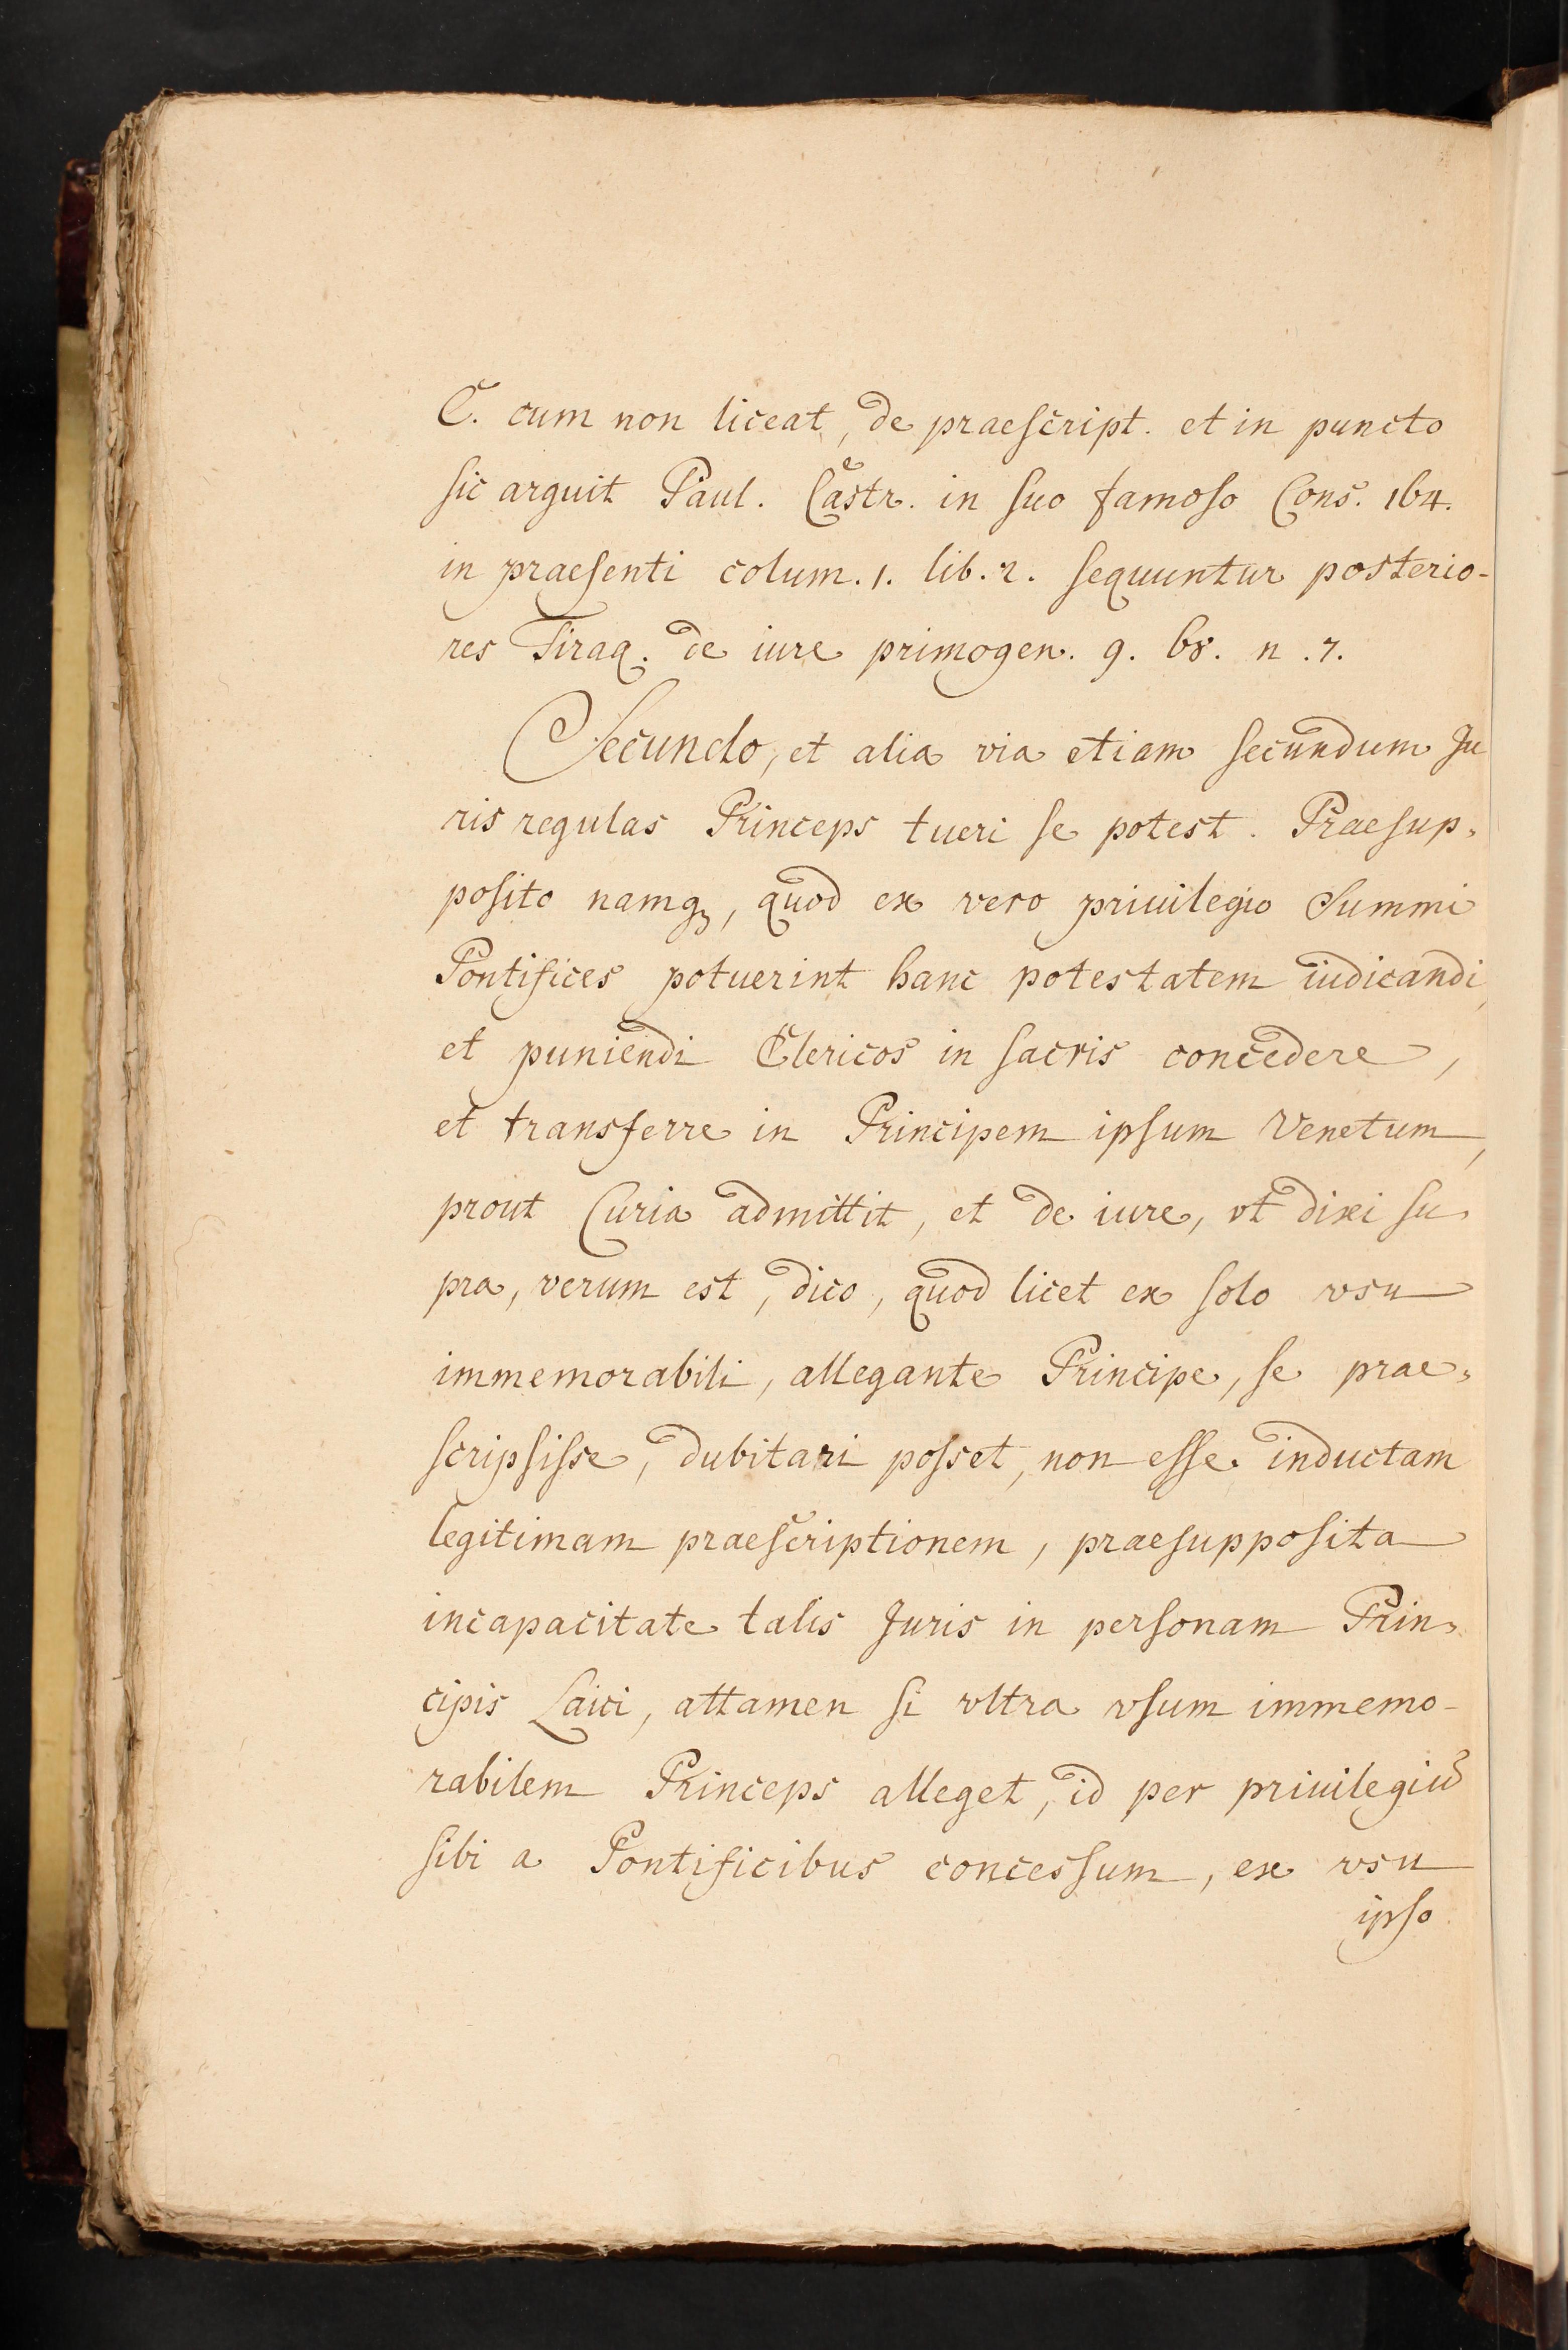 C. cum non liceat, de praeſcript. et in puncto
ſic arguit Paul. Castr. in ſuo famoſo Cons. 164.
in praeſenti colum. 1. lib. 2. ſequuntur posterio-
res Tiraq. de iure primogen. q. 68. n. 7.
Secundo, et alia via etiam ſecundum Ju
ris regulas Princeps tueri ſe potest. Praeſup,
poſito namqꝫ, quod ex vero priuilegio Summi
Pontifices potuerint hanc potestatem iudicandi,
et puniendi Clericos in ſacris concedere,
et transferre in Principem ipſum Venetum,
prout Curia admittit, et de iure, vt dixi ſu
pra, verum est, dico, quod licet ex ſolo vsu
immemorabili, allegante Principe, ſe prae,
ſcripſiſse, dubitari poſset, non eſſe inductam
legitimam praeſcriptionem, praeſuppoſita
incapacitate talis Juris in perſonam Prin,
cipis Laici, attamen ſi vltra vſum immemo-
rabilem Princeps alleget, id per priuilegiū
ſibi a Pontificibus conceſſum, ex vsu
ipſo